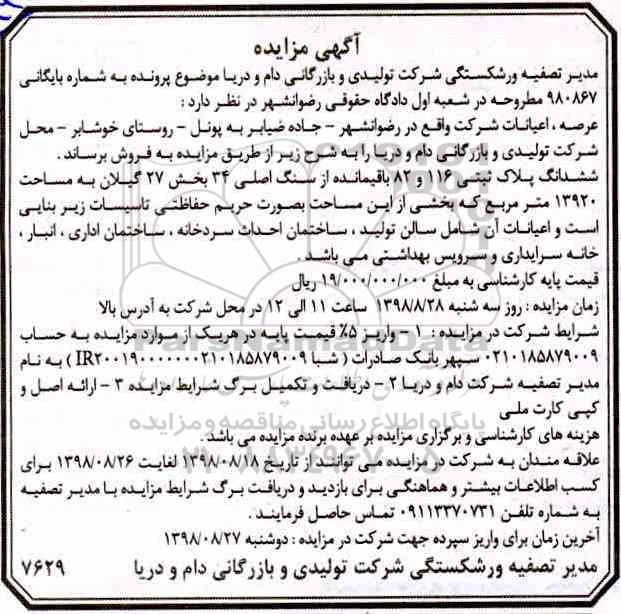 آگهی مزایده
مدیر تصفیه ورشکستگی شرکت تولیدی و بازرگانی دام و دریا موضوع پرونده به شماره بایگانی
۹۸۰۸۶۷ مطروحه در شعبه اول دادگاه حقوقی رضوانشهر در نظر دارد :
عرصه ، اعیانات شرکت واقع در رضوانشهر - جاده ضیابر به پونل - روستای خوشابر - محل
شرکت تولیدی و بازرگانی دام و دریا را به شرح زیر از طریق مزایده به فروش برساند .
ششدانگ پلاک ثبتی ۱۱۶ و ۸۲ باقیمانده از سنگ اصلی ۳۴ بخش ۲۷ گیلان به مساحت
۱۳۹۲۰ متر مربع که بخشی از این مساحت بصورت حریم حفاظتی تاسیسات زیر بنایی
است و اعیانات آن شامل سالن تولید ، ساختمان احداث سردخانه ، ساختمان اداری ، انبار ،
خانه سرایداری و سرویس بهداشتی می باشد .
قیمت پایه کارشناسی به مبلغ ۱۹/۰۰۰/۰۰۰/۰۰۰ ریال
زمان مزایده : روز سه شنبه ۱۳۹۸/۸/۲۸ ساعت ۱۱ الی ۱۲ در محل شرکت به آدرس بالا
شرایط شرکت در مزایده : ۱ - واریز ۵٪ قیمت پایه در هریک از موارد مزایده به حساب
۰۲۱۰۱۸۵۸۷۹۰۰۹ سپهر بانک صادرات ( شبا IR۲۰۰۱۹۰۰۰۰۰۰۰۲۱۰۱۸۵۸۷۹۰۰۹ ) به نام
مدیر تصفیه شرکت دام و دریا ۲ - دریافت و تکمیل برگ شرایط مزایده ۳ - ارائه اصل و
کپی کارت ملی
هزینه های کارشناسی و برگزاری مزایده بر عهده برنده مزایده می باشد .
علاقه مندان به شرکت در مزایده می توانند از تاریخ ۱۳۹۸/۰۸/۱۸ لغایت ۱۳۹۸/۰۸/۲۶ برای
کسب اطلاعات بیشتر و هماهنگی برای بازدید و دریافت برگ شرایط مزایده با مدیر تصفیه
به شماره تلفن ۰۹۱۱۳۳۷۰۷۳۱ تماس حاصل فرمایند .
آخرین زمان برای واریز سپرده جهت شرکت در مزایده : دوشنبه ۱۳۹۸/۰۸/۲۷
مدیر تصفیه ورشکستگی شرکت تولیدی و بازرگانی دام و دریا ۷۶۲۹
پایگاه اطلاع رسانی مناقصه و مزایده